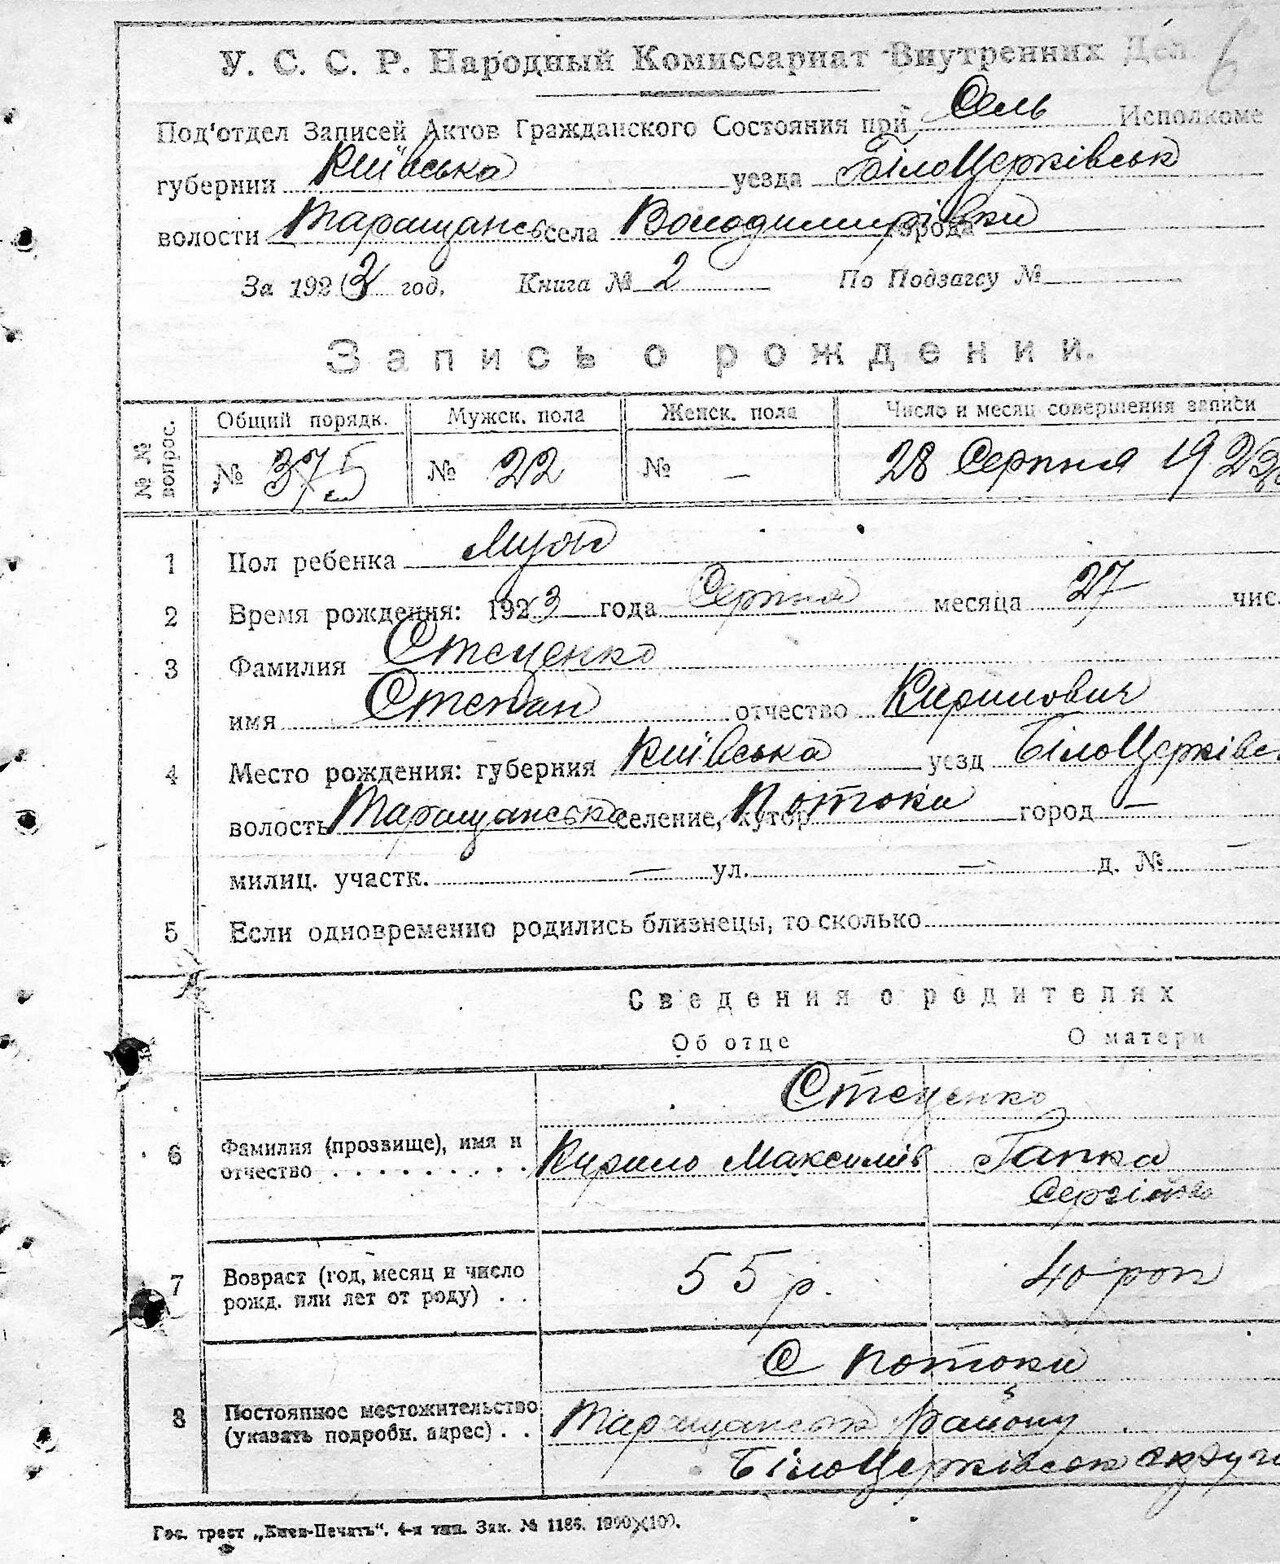 6
У. С. С. Р. Народный Комиссариат Внутренних Дел.
Под'отдел Записей Актов Гражданского Состояния при Сель Исполкоме
губернии Київська уезда БілоЦерківськ
волости Таращансь села Володимирівки города
За 1923 год. Книга № 2 По Подзагсу №
Запись о рождении.
№ № вопрос. Общий порядк. Мужск. пола Женск. пола Число и месяц совершения записи
№ 375 № 22 № – 28 Серпня 1923
1 Пол ребенка
2 Время рождения: 1923 года Серпня месяца 27 чис.
3 Фамилия Стеценко
имя Степан отчество Кирилович
4 Место рождения: губерния Київська уезд БілоЦерківс
волость Таращанська селение, хутор Потоки город —
милиц. участк. — ул. — д. № —
5 Если одновременно родились близнецы, то сколько
Сведения о родителях
Об отце О матери
Стеценко
6 Фамилия (прозвище), имя и
отчество . . . . . . . . . Кирило Максимів Гапка
Сергіївна
7 Возраст (год, месяц и число
рожд. или лет от роду) . . 55 р. 40 рок
С Потоки
8 Постоянное местожительство
(указать подробн. адрес) . . Таращанськ Району
БілоЦерківськ округи
Гос. трест „Киев-Печать". 4-я тип. Зак. № 1186. 1000×100.